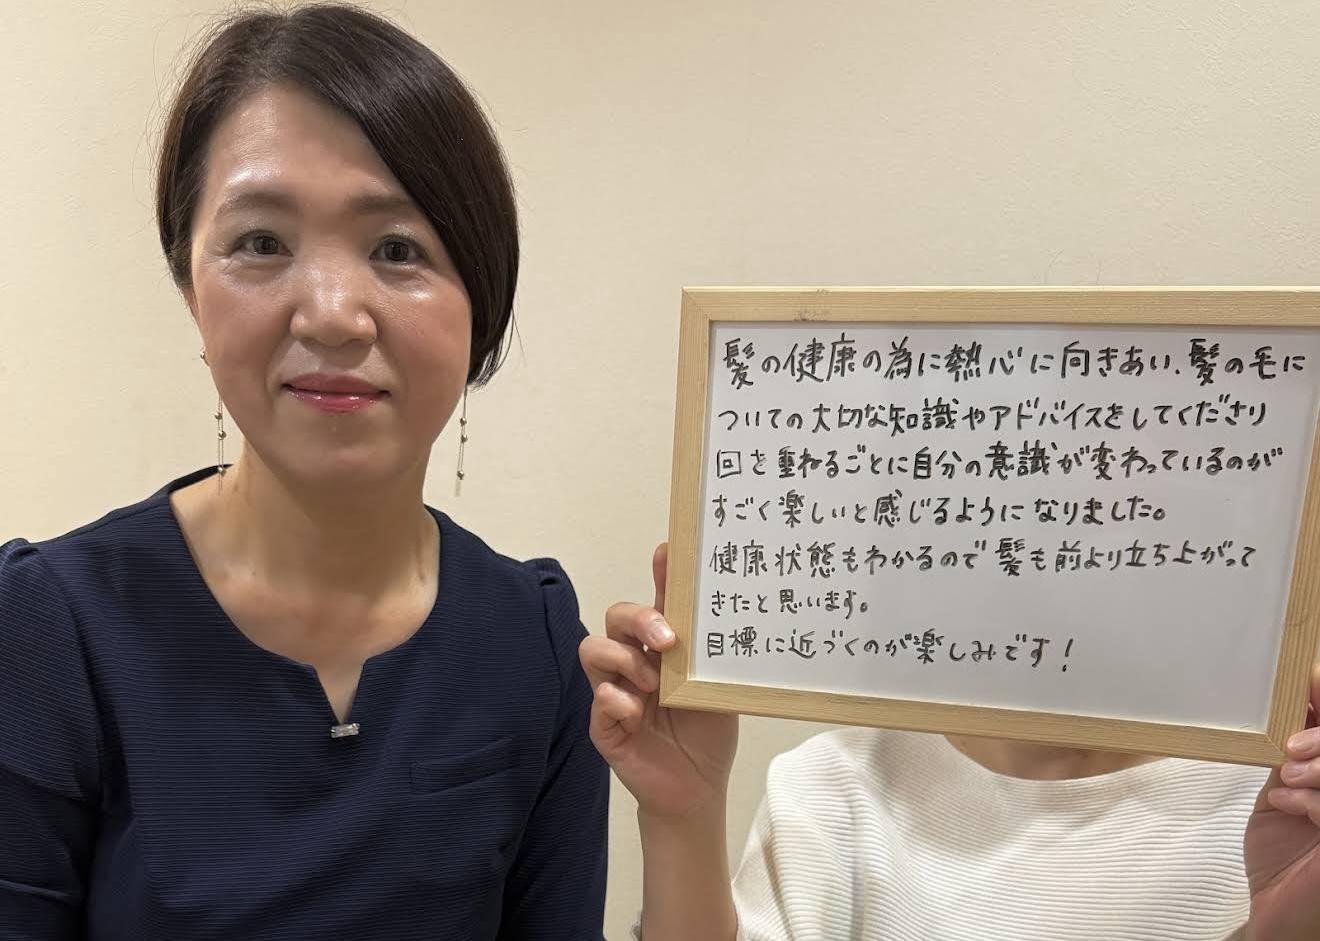 髪の健康の為に熱心に向きあい、髪の毛に
ついての大切な知識やアドバイスをしてくださり
回を重ねるごとに自分の意識が変わっているのが
すごく楽しいと感じるようになりました。
健康状態もわかるので髪も前より立ち上がって
きたと思います。
目標に近づくのが楽しみです！